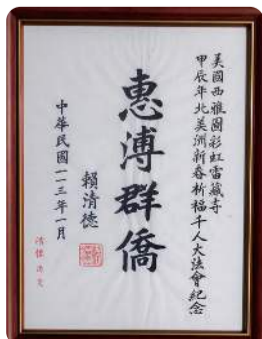 美國西雅圖彩虹雷藏寺
甲辰年北美洲新春祈福千人大法會紀念
惠溥群僑
賴清德
中華民國一一三年一月